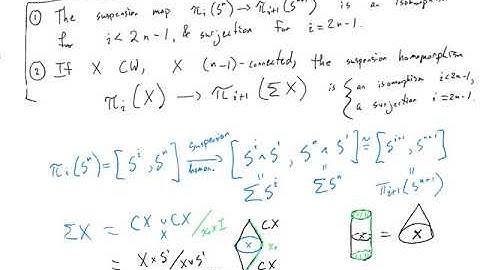 ① The suspension map πᵢ(Sⁿ) → πᵢ₊₁(Sⁿ⁺¹) is an isomorphism
for i < 2n-1, & surjection for i = 2n-1.
② If X CW, X (n-1)-connected, the suspension homomorphism
πᵢ(X) → πᵢ₊₁(ΣX) is { an isomorphism i<2n-1,
a surjection i=2n-1.
πᵢ(Sⁿ) = [Sⁱ, Sⁿ] suspension homom. → [Sⁱ ∧ S¹, Sⁿ ∧ S¹] ≅ [Sⁱ⁺¹, Sⁿ⁺¹]
ΣSⁱ ΣSⁿ πᵢ₊₁(Sⁿ⁺¹)
ΣX = CX ∪ CX / x₀×I
X
CX
X x₀
CX
X = X
= X×S¹/X∨S¹